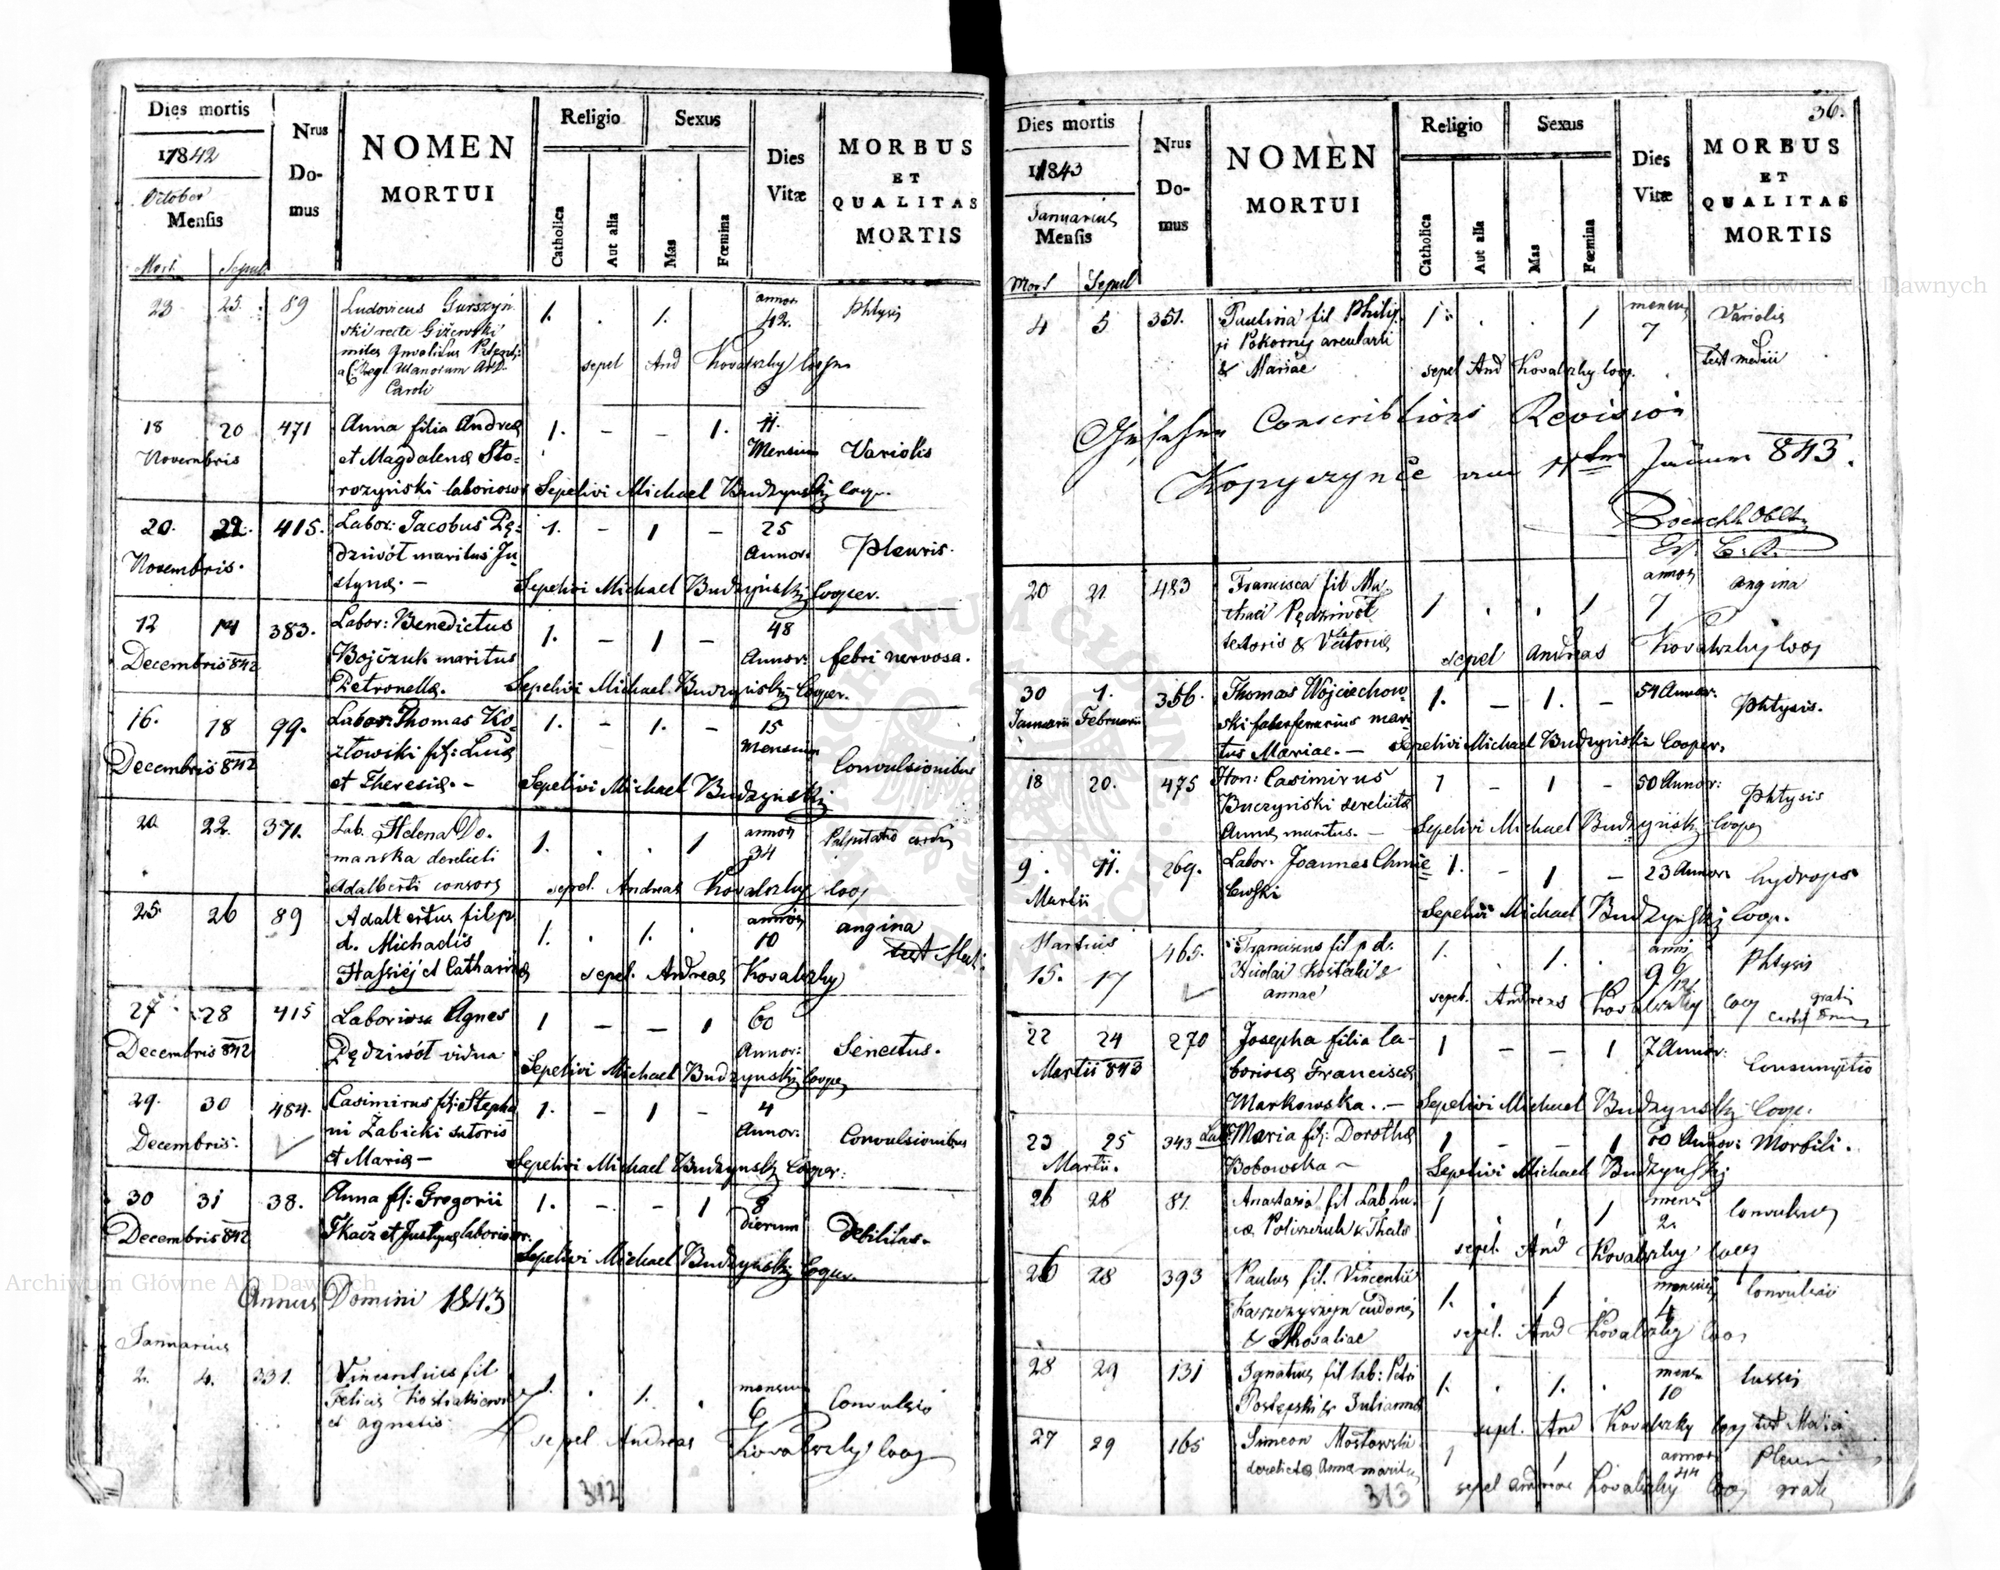 Dies mortis
Nrus
Do-
mus
NOMEN
MORTUI
Religio
Sexus
Catholica
Aut alia
Mas
Fœmina
Dies
Vitæ
MORBUS
ET
QUALITAS
MORTIS
1842
October
Mensis
Mort. Sepul.
23 25. 89 Ludovicus 1. . 1. annor 42. Phtysis
ski recte Giżewski
miles Invalidus
Caroli
sepel And Kovalszky Coop
18 20 471 Anna filia Andreæ 1. – – 1. 11.
Novembris et Magdalenæ Sto- Mensium Variolis
rozyński laboriosor Sepelivi Michael Budzynski Coop.
20. 22. 415. Labor: Jacobus Pę- 1. – 1 – 25
Novembris. dziwót maritus Ju- Annor: Pleuris.
stynæ. – Sepelivi Michael Budzyński Cooper.
12 14 383. Labor: Benedictus 1. – 1 – 48
Decembris 842 Bojczuk maritus Annor: febri nervosa.
Petronellæ. Sepelivi Michael Budzynski Cooper.
16. 18 99. Labor: Thomas Ko- 1. – 1. – 15
Decembris 842 złowski fil: Lucæ Mensium Convulsionibus
et Theresiæ. – Sepelivi Michael Budzynski
20. 22. 371. Lab. Helena Do- 1. . . 1 annor 34 Palpitatio cordis
manska derelicti
Adalberti consors sepel. Andreas Kovalszky Coop
25 26 89 Adalbertus fil p. 1. . 1. . annor 10 angina
d. Michaelis
et Catharinæ sepel. Andreas Kovalszky
27 28 415 Laboriosa Agnes 1 – – 1 60
Decembris 842 Pędziwót vidua Annor: Senectus.
Sepelivi Michael Budzynski Cooper
29. 30 484. Casimirus fil: Stepha 1. – 1 – 4
Decembris. ni Żabicki sutoris Annor: Convulsionibus
et Mariæ – Sepelivi Michael Budzynski Cooper:
30 31 38. Anna fil: Gregorii 1. – – 1 8
Decembris 842 Tkacz et Justynæ laborior. dierum Debilitas.
Sepelivi Michael Budzynski Cooper.
Annus Domini 1843
Januarius
2. 4. 331. Vincentius fil 1. . 1. . mensium 6 Convulsio
Felicis
et Agnetis
sepel Andreas Kovalszky Coop
312
36.
Dies mortis
Nrus
Do-
mus
NOMEN
MORTUI
Religio
Sexus
Catholica
Aut alia
Mas
Fœmina
Dies
Vitæ
MORBUS
ET
QUALITAS
MORTIS
1843
Januarius
Mensis
Mort Sepul
4 5 351. Paulina fil Philip- 1. . . 1 mensium 7 Variolis
pi Pokorny arcularii
& Mariæ sepel And Kovalszky Coop.
Gesehen Conscribtions Revision
Kopyczynce am 11ten Jänner 843.
20 21 483 Francisca fil Mi- 1 . . 1 annor 7 angina
chael Pędziwót
sutoris & Victoriæ sepel Andreas Kovalszky Coop
30 1. 356. Thomas Wojciechow- 1. – 1. – 54 Annor: Phtysis.
Januarii Februarii ski faber ferrarius mari-
tus Mariæ. – Sepelivi Michael Budzynski Cooper.
18 20. 475 Hon: Casimirus 1 – 1 – 50 Annor: Phtysis
Buczyński derelictæ
Annæ maritus. – Sepelivi Michael Budzyński Cooper
9. 11. 269. Labor. Joannes Chmie 1. – 1 – 23 Annor: hydrops
Martii lewski
Sepelivi Michael Budzynski Coop.
Martius 465. Franciscus fil p d. 1. . 1. . anni Phtysis
15. 17 Nicolai 9 6/12
annæ sepel. Andreas Kovalszky Coop gratis
22 24 270 Josepha filia la- 1 – – 1 7 Annor: Consumptio
Martii 843 boriosæ Franciscæ
Markowska. – Sepelivi Michael Budzynski Coop.
23 25 343 Lab: Maria fil: Dorotheæ 1 – – 1 10 Annor: Morbili.
Martii. Bobowska – Sepelivi Michael Budzynski
26 28 87. Anastasia fil Lab Lu- 1 . . 1 mens 2. Convulsio
sepel. And Kovalszky Coop
26 28 393 Paulus fil. Vincentii 1. . 1 . mensium 4 Convulsio
& Rosaliae sepel. And Kovalszky Coop
28 29 131 Ignatius fil lab: Petri 1. . 1. . mens 10 tussis
Postępski & Julianna
sepel. And Kovalszky Coop
27 29 165 Simeon Mostowski 1 1 annor 44 Pleuris
derelictæ Anna maritus
sepel andreas Kovalszky Coop gratis
313
Archiwum Główne Akt Dawnych
Archiwum Główne Akt Dawnych